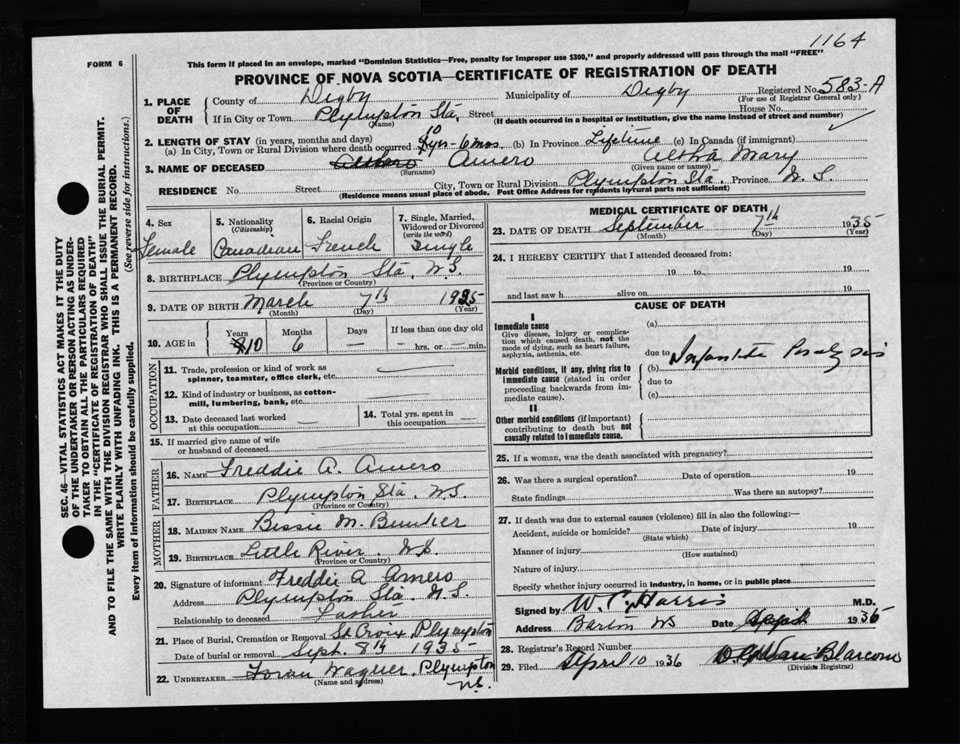 1164
FORM 6
This form if placed in an envelope, marked "Dominion Statistics—Free, penalty for improper use $300," and properly addressed will pass through the mail "FREE"
PROVINCE OF NOVA SCOTIA—CERTIFICATE OF REGISTRATION OF DEATH
SEC. 46—VITAL STATISTICS ACT MAKES IT THE DUTY
OF THE UNDERTAKER OR PERSON ACTING AS UNDER-
TAKER TO OBTAIN ALL THE PARTICULARS REQUIRED
IN THE "CERTIFICATE OF REGISTRATION OF DEATH"
AND TO FILE THE SAME WITH THE DIVISION REGISTRAR WHO SHALL ISSUE THE BURIAL PERMIT.
WRITE PLAINLY WITH UNFADING INK. THIS IS A PERMANENT RECORD.
Every item of information should be carefully supplied. (See reverse side for instructions.)
1. PLACE OF DEATH
County of Digby Municipality of Digby Registered No. 583-A
(For use of Registrar General only)
If in City or Town Plympton Sta, Street House No.
(Name) (If death occurred in a hospital or institution, give the name instead of street and number)
2. LENGTH OF STAY (in years, months and days)
(a) In City, Town or Rural Division where death occurred 10 yrs-6mos. (b) In Province Lifetime (c) In Canada (if immigrant)
3. NAME OF DECEASED Amero Mary
(Surname) (Given name or names)
RESIDENCE No. Street City, Town or Rural Division Plympton Sta. Province N.S.
(Residence means usual place of abode. Post Office Address for residents by rural parts not sufficient)
4. Sex Female
5. Nationality (Citizenship) Canadian
6. Racial Origin French
7. Single, Married, Widowed or Divorced (write the word) Single
8. BIRTHPLACE Plympton Sta, N.S.
(Province or Country)
9. DATE OF BIRTH March 7th 1925
(Month) (Day) (Year)
10. AGE in Years 10 Months 6 Days — If less than one day old — hrs. or — min.
OCCUPATION
11. Trade, profession or kind of work as spinner, teamster, office clerk, etc. —
12. Kind of industry or business, as cotton-mill, lumbering, bank, etc. —
13. Date deceased last worked at this occupation —
14. Total yrs. spent in this occupation —
15. If married give name of wife or husband of deceased
FATHER
16. NAME Freddie A. Amero
17. BIRTHPLACE Plympton Sta. N.S.
(Province or Country)
MOTHER
18. MAIDEN NAME Bessie M. Bunker
19. BIRTHPLACE Little River. N.S.
(Province or Country)
20. Signature of informant Freddie A Amero
Address Plympton Sta. N.S.
Relationship to deceased Father
21. Place of Burial, Cremation or Removal St Croix Plympton
Date of burial or removal Sept. 8th 1935
22. UNDERTAKER Wagner, Plympton
(Name and address) N.S.
MEDICAL CERTIFICATE OF DEATH
23. DATE OF DEATH September 7th 1935
(Month) (Day) (Year)
24. I HEREBY CERTIFY that I attended deceased from:
19 to 19
and last saw h alive on 19
CAUSE OF DEATH
I
Immediate cause
Give disease, injury or complication which caused death, not the mode of dying, such as heart failure, asphyxia, asthenia, etc.
Morbid conditions, if any, giving rise to immediate cause (stated in order proceeding backwards from immediate cause).
II
Other morbid conditions (if important) contributing to death but not causally related to immediate cause.
(a)
due to Infantile Paralysis
(b)
due to
(c)
25. If a woman, was the death associated with pregnancy?
26. Was there a surgical operation? Date of operation 19
State findings Was there an autopsy?
27. If death was due to external causes (violence) fill in also the following:—
Accident, suicide or homicide? Date of injury 19
(State which)
Manner of injury
(How sustained)
Nature of injury
Specify whether injury occurred in industry, in home, or in public place
Signed by W. C. Harris M.D.
Address Barton NS Date April 1936
28. Registrar's Record Number
29. Filed April 10 1936 Van Blarcom
(Division Registrar)